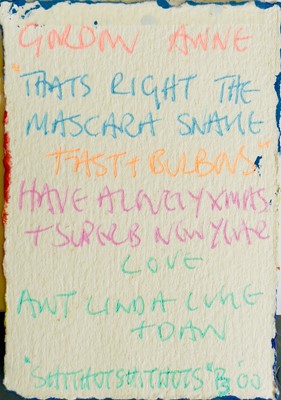 GORDON ANNE
"THATS RIGHT THE
MASCARA SNAKE
FAST + BULBOUS"
HAVE A LOVELY XMAS
+ SUPERB NEW YEAR
LOVE
ANT LINDA LUKE
+ DAN
'00